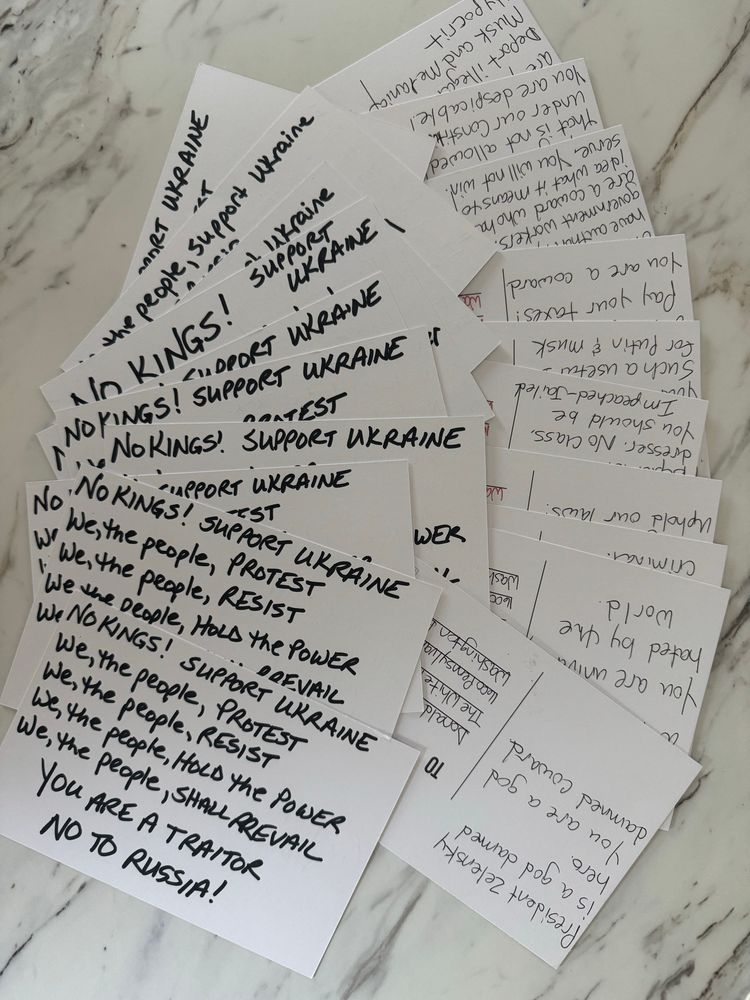 UKRAINE
the people, support Ukraine
Ukraine
SUPPORT
UKRAINE
NO KINGS!
SUPPORT UKRAINE
NO KINGS! SUPPORT UKRAINE
PROTEST
NO KINGS! SUPPORT UKRAINE
POWER
SUPPORT UKRAINE
NO
NO KINGS! SUPPORT UKRAINE
We, the people, PROTEST
We, the people, RESIST
We the people, HOLD the POWER
PREVAIL
NO KINGS! SUPPORT UKRAINE
We, the people, PROTEST
We, the people, RESIST
We, the people, HOLD the POWER
We, the people, SHALL PREVAIL
YOU ARE A TRAITOR
NO TO RUSSIA!
are
Deport
Musk and Melania
That is not allowed
under our
You are despicable!
have
government workers.
are a coward who
idea what it means to
serve. You will not win.
Pay your taxes!
You are a coward
Such a
for Putin & Musk
dresser. No class.
You should be
Impeached-Jailed
Uphold our laws.
criminal.
You are
hated by the
World.
President Zelensky
is a god damed
hero.
You are a god
damned coward
TO
Donald
The White
1600
Washington